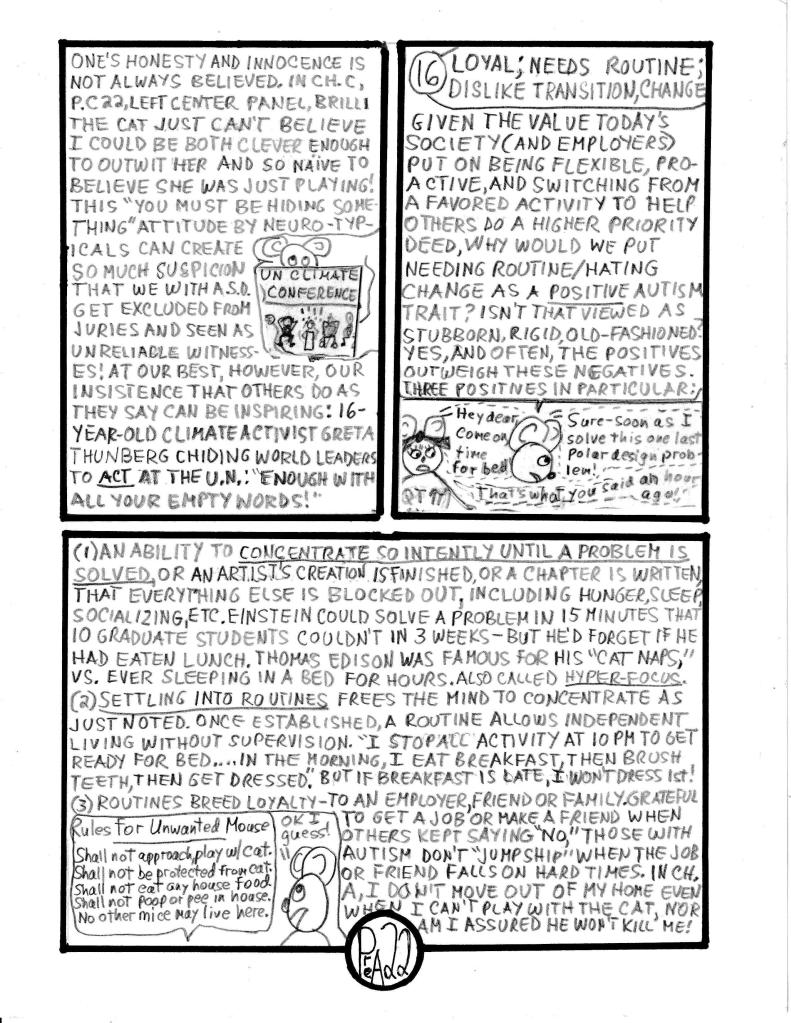 ONE'S HONESTY AND INNOCENCE IS
NOT ALWAYS BELIEVED. IN CH. C,
P.C22, LEFT CENTER PANEL, BRILLI
THE CAT JUST CAN'T BELIEVE
I COULD BE BOTH CLEVER ENOUGH
TO OUTWIT HER AND SO NAÏVE TO
BELIEVE SHE WAS JUST PLAYING!
THIS "YOU MUST BE HIDING SOME-
THING" ATTITUDE BY NEURO-TYP-
ICALS CAN CREATE
SO MUCH SUSPICION
THAT WE WITH A.S.D.
GET EXCLUDED FROM
JURIES AND SEEN AS
UNRELIABLE WITNESS-
ES! AT OUR BEST, HOWEVER, OUR
INSISTENCE THAT OTHERS DO AS
THEY SAY CAN BE INSPIRING: 16-
YEAR-OLD CLIMATE ACTIVIST GRETA
THUNBERG CHIDING WORLD LEADERS
TO ACT AT THE U.N.: "ENOUGH WITH
ALL YOUR EMPTY WORDS!"
UN CLIMATE
CONFERENCE
16 LOYAL; NEEDS ROUTINE;
DISLIKE TRANSITION, CHANGE
GIVEN THE VALUE TODAY'S
SOCIETY (AND EMPLOYERS)
PUT ON BEING FLEXIBLE, PRO-
ACTIVE, AND SWITCHING FROM
A FAVORED ACTIVITY TO HELP
OTHERS DO A HIGHER PRIORITY
DEED, WHY WOULD WE PUT
NEEDING ROUTINE/HATING
CHANGE AS A POSITIVE AUTISM
TRAIT? ISN'T THAT VIEWED AS
STUBBORN, RIGID, OLD-FASHIONED?
YES, AND OFTEN, THE POSITIVES
OUTWEIGH THESE NEGATIVES.
THREE POSITIVES IN PARTICULAR:
Hey dear
Come on
time
for bed
Sure-soon as I
solve this one last
Polar design prob-
lem!
That's what you said an hour
ago!
(1) AN ABILITY TO CONCENTRATE SO INTENTLY UNTIL A PROBLEM IS
SOLVED, OR AN ARTIST'S CREATION IS FINISHED, OR A CHAPTER IS WRITTEN,
THAT EVERYTHING ELSE IS BLOCKED OUT, INCLUDING HUNGER, SLEEP,
SOCIALIZING, ETC. EINSTEIN COULD SOLVE A PROBLEM IN 15 MINUTES THAT
10 GRADUATE STUDENTS COULDN'T IN 3 WEEKS - BUT HE'D FORGET IF HE
HAD EATEN LUNCH. THOMAS EDISON WAS FAMOUS FOR HIS "CAT NAPS,"
VS. EVER SLEEPING IN A BED FOR HOURS. ALSO CALLED HYPER-FOCUS.
(2) SETTLING INTO ROUTINES FREES THE MIND TO CONCENTRATE AS
JUST NOTED. ONCE ESTABLISHED, A ROUTINE ALLOWS INDEPENDENT
LIVING WITHOUT SUPERVISION. "I STOP ALL ACTIVITY AT 10 PM TO GET
READY FOR BED.... IN THE MORNING, I EAT BREAKFAST, THEN BRUSH
TEETH, THEN GET DRESSED." BUT IF BREAKFAST IS LATE, I WON'T DRESS 1st!
(3) ROUTINES BREED LOYALTY - TO AN EMPLOYER, FRIEND OR FAMILY. GRATEFUL
TO GET A JOB OR MAKE A FRIEND WHEN
OTHERS KEPT SAYING "NO," THOSE WITH
AUTISM DON'T "JUMP SHIP" WHEN THE JOB
OR FRIEND FALLS ON HARD TIMES. IN CH.
A, I DON'T MOVE OUT OF MY HOME EVEN
WHEN I CAN'T PLAY WITH THE CAT, NOR
AM I ASSURED HE WON'T KILL ME!
Rules for Unwanted Mouse
Shall not approach, play w/ cat.
Shall not be protected from cat.
Shall not eat any house food.
Shall not poop or pee in house.
No other mice may live here.
OK I
guess!
Pre A22